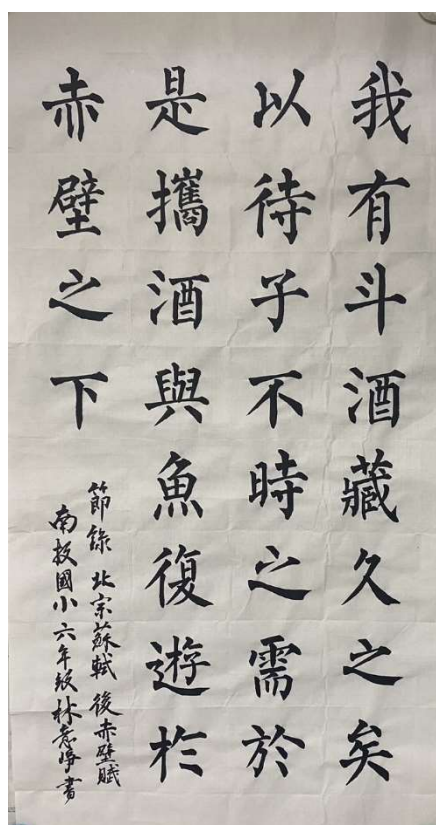 我有斗酒藏久之矣
以待子不時之需於
是攜酒與魚復遊於
赤壁之下
節錄 北宗蘇軾 後赤壁賦
南投國小 六年級 林 書